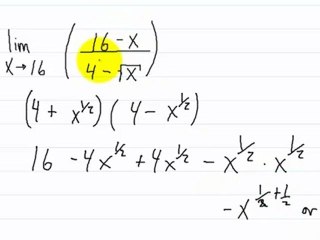 lim x→16 ( (16 - x) / (4 - √x) )
(4 + x^1/2)(4 - x^1/2)
16 - 4x^1/2 + 4x^1/2 - x^1/2 · x^1/2
- x^1/2 + 1/2 or